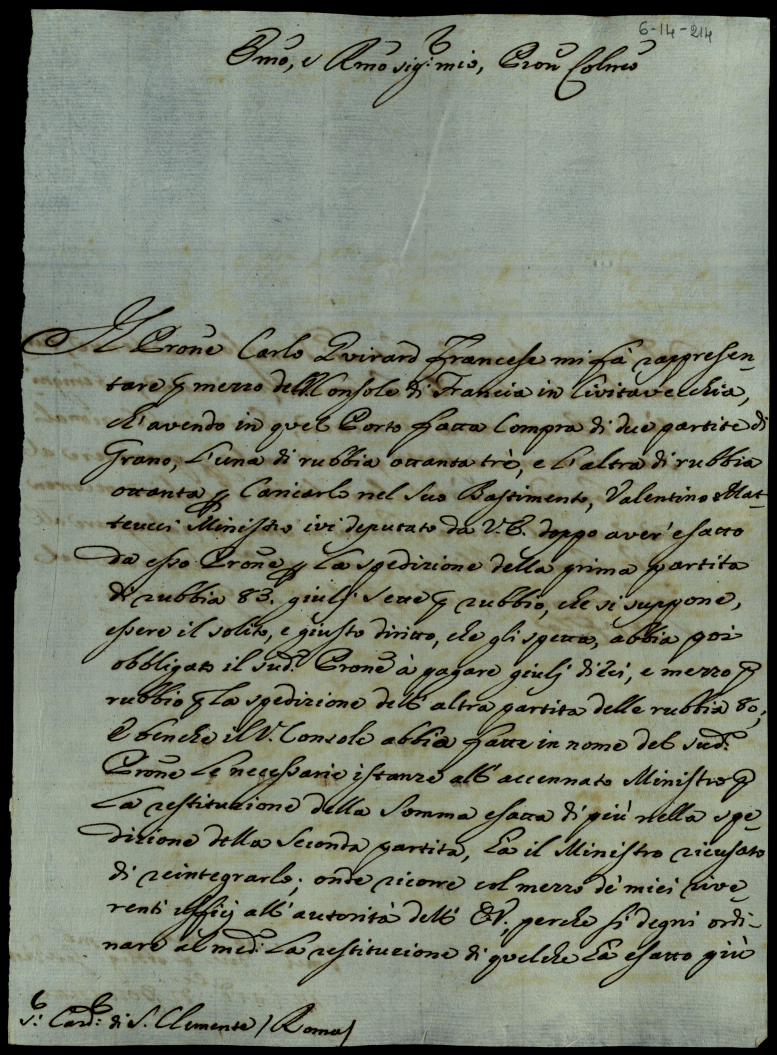 6-14-214
Emo, e Rmo sig.r mio, Pron Colmo
Il Prone Carlo Qvirard Francese mi fà rappresen-
tare p mezzo dell Console di Francia in Civitavecchia,
ch'avendo in quel Porto fatta Compra di due partite di
Grano, l'una di rubbia ottanta trè, e l'altra di rubbia
ottanta p Caricarlo nel suo Bastimento, Valentino Mat-
teucci Ministro ivi deputato da V.E. doppo aver' esatto
da esso Prone p la spedizione della prima partita
di rubbia 83. giulj sette p rubbio, che si suppone,
essere il solito, e giusto diritto, che gli spetta, abbia poi
obbligato il sud.o Prone à pagare giulj dieci, e mezzo p
rubbio p la spedizione dell' altra partita delle rubbia 80;
E benche il V. Console abbia fatte in nome del sud.o
Prone le necessarie istanze all' accennato Ministro p
la restituzione della somma esatta di più nella spe-
dizione della seconda partita, hà il Ministro ricusato
di reintegrarlo; onde ricorre col mezzo de' miei rive-
renti ufficj all' autorità dell' E.V., perche si degni ordi-
nare al med.o la restituzione di quelche hà esatto più
S.r Card: di S. Clemente / Roma /